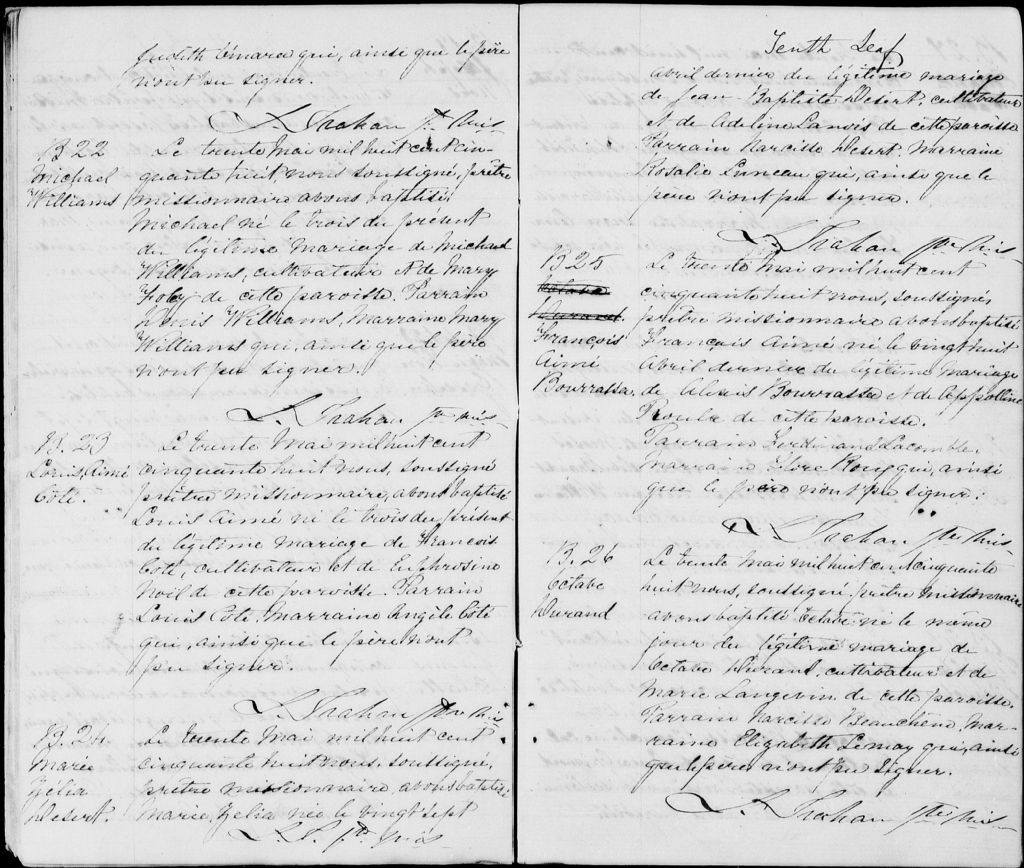 Judith Lemare qui, ainsi que le père
n'ont pu signer.
L. Trahan ptre Mis-
B22
Michael
Williams
Le trente Mai mil huit cent cin-
quante huit, nous soussigné, prêtre
missionnaire avons baptisé
Michael né le trois du présent
du légitime mariage de Michael
Williams, cultivateur et de Mary
Foley de cette paroisse. Parrain
Denis Williams, Marraine Mary
Williams qui, ainsi que le père
n'ont pu signer.
L. Trahan ptre Mis-
B. 23
Louis, Aimé
Coté.
Le trente Mai mil huit cent
cinquante huit nous, soussigné
prêtre missionnaire, avons baptisé
Louis Aimé né le trois du présent
du légitime mariage de François
Coté, cultivateur et de Euphrosine
Noël de cette paroisse. Parrain
Louis Coté, Marraine Angèle Coté
qui, ainsi que le père n'ont
pu signer.
L. Trahan ptre Mis
B. 24
Marie
Zélia
Desert.
Le trente Mai mil huit cent
cinquante huit nous, soussigné,
prêtre missionnaire, avons baptisé
Marie, Zelia née le vingt sept
L. T. ptr. Mis-
Tenth Leaf
Abril dernier du légitime mariage
de Jean-Baptiste Desert, cultivateur
et de Adeline Lanois de cette paroisse
Parrain Narcisse Desert. Marraine
Rosalie Luneau qui, ainsi que le
père n'ont pu signer.
L. Trahan ptre Mis-
B25
Durand.
François
Aimé
Bourrassa.
Le Trente Mai mil huit cent
cinquante huit nous, soussigné,
prêtre missionnaire avons baptisé
François Aimé né le vingt huit
Abril dernier du légitime mariage
de Alexis Bourrassa et de Appolline
Proulx de cette paroisse.
Parrain Ferdinand Lacombe,
marraine Flore Houle qui, ainsi
que le père n'ont pu signer.
L. Trahan ptre Mis-
B. 26
Octave
Durand
Le trente Mai mil huit cent cinquante
huit nous, soussigné prêtre missionnaire
avons baptisé Octave né le même
jour du légitime mariage de
Octave Durant, cultivateur et de
Marie Langevin de cette paroisse.
Parrain Narcisse Beauchène, Mar-
raine Elizabeth Lemay qui, ainsi
que le père n'ont pu signer.
L. Trahan ptre Mis-